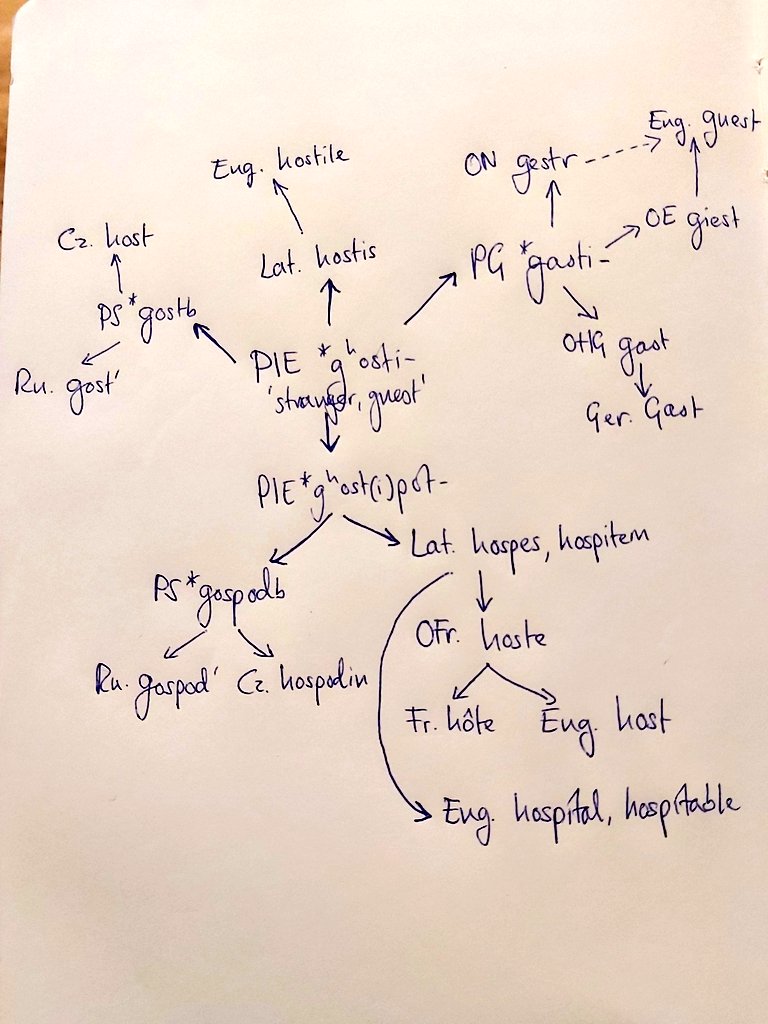 Eng. guest
Eng. hostile
ON gestr
OE giest
Cz. host
Lat. hostis
PG *gasti-
PS *gostь
OHG gast
PIE *gʰosti-
'stranger, guest'
Ru. gost'
Ger. Gast
PIE *gʰost(i)pot-
Lat. hospes, hospitem
PS *gospodь
OFr. hoste
Ru. gospod' Cz. hospodin
Fr. hôte Eng. host
Eng. hospital, hospitable